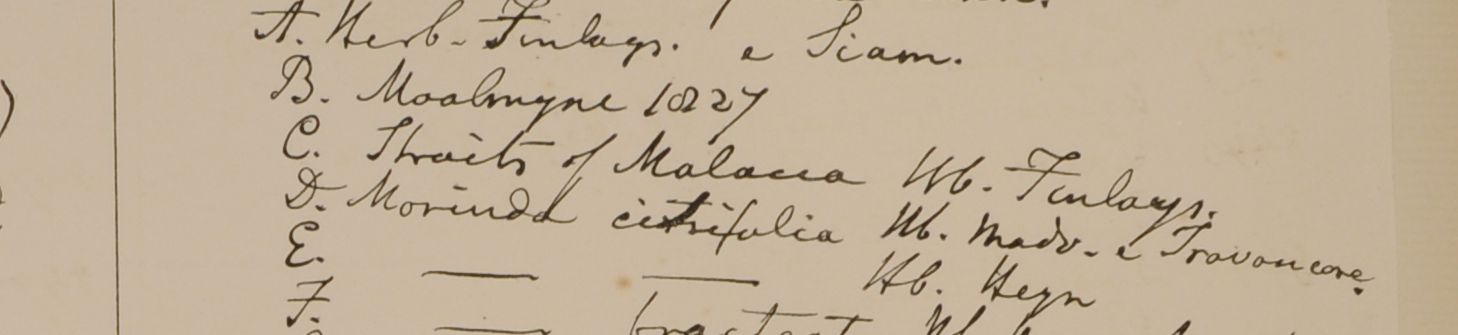 A. Herb. Finlays. e Siam.
B. Moalmyne 1827
C. Straits of Malacca Hb. Finlays.
D. Morinda citrifolia Hb. Madr. e Travancore.
E. — — Hb. Heyn
F. — bracteat Hb.